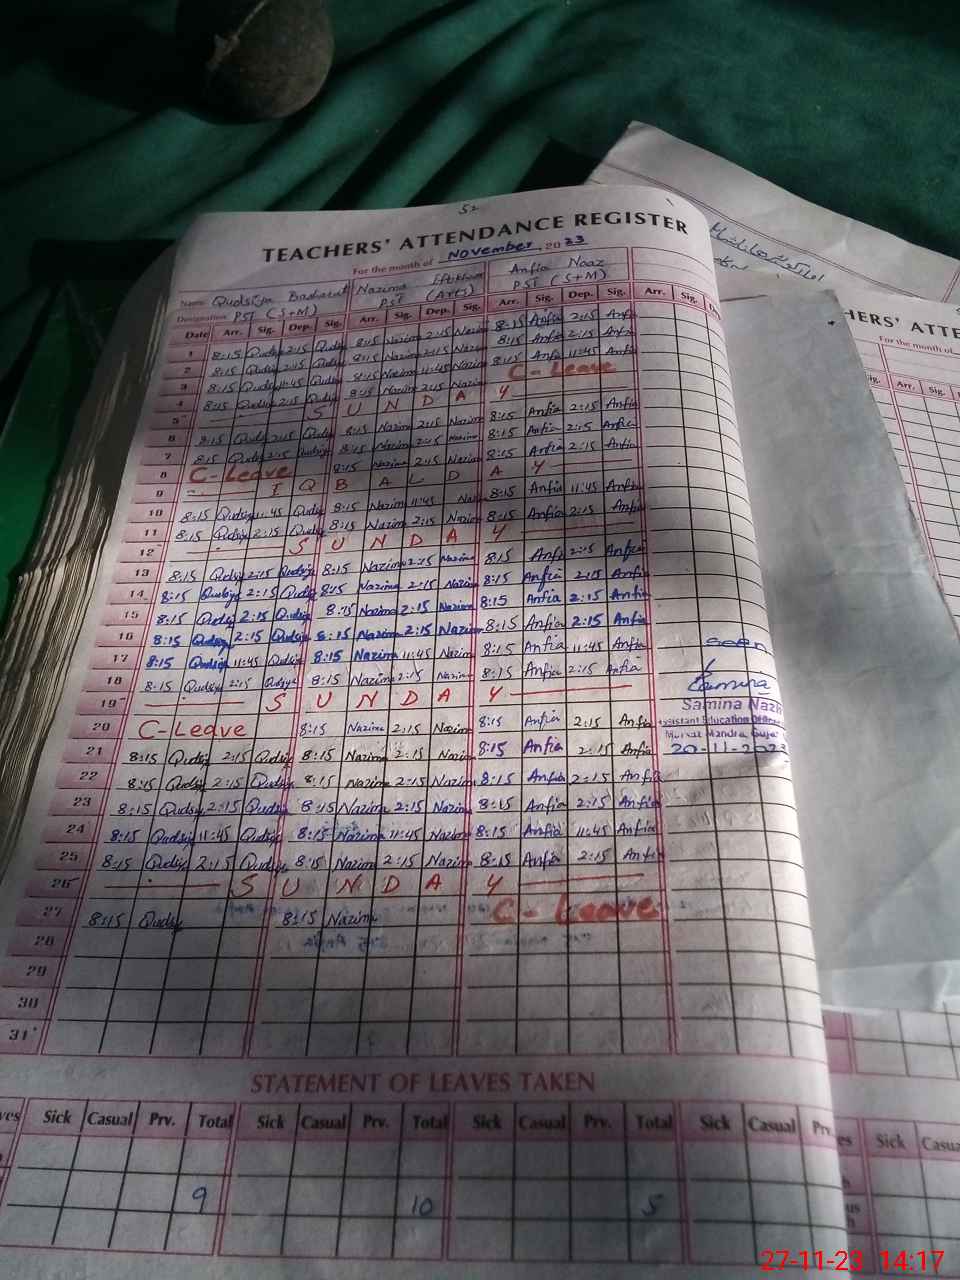 52
TEACHERS' ATTENDANCE REGISTER
For the month of November, 2023
Name: Qudsiya Basharat Nazima Iftikhar Anfia Naaz
Designation PST (S+M) PST (Arts) PST (S+M)
Date Arr. Sig. Dep. Sig. Arr. Sig. Dep. Sig. Arr. Sig. Dep. Sig. Arr. Sig.
1 8:15 Qudsy 2:15 Qudsy 8:15 Nazima 2:15 Nazima 8:15 Anfia 2:15 Anfia
2 8:15 Qudsy 2:15 Qudsy 8:15 Nazima 2:15 Nazima 8:15 Anfia 2:15 Anfia
3 8:15 Qudsy 11:45 Qudsy 8:15 Nazima 11:45 Nazima 8:15 Anfia 11:45 Anfia
4 8:15 Qudsy 2:15 Qudsy 8:15 Nazima 2:15 Nazima C-Leave
5 S U N D A Y
6 8:15 Qudsy 2:15 Qudsy 8:15 Nazima 2:15 Nazima 8:15 Anfia 2:15 Anfia
7 8:15 Qudsy 2:15 Qudsy 8:15 Nazima 2:15 Nazima 8:15 Anfia 2:15 Anfia
8 C-Leave 8:15 Nazima 2:15 Nazima 8:15 Anfia 2:15 Anfia
9 I Q B A L D A Y
10 8:15 Qudsy 11:45 Qudsy 8:15 Nazima 11:45 Nazima 8:15 Anfia 11:45 Anfia
11 8:15 Qudsy 2:15 Qudsy 8:15 Nazima 2:15 Nazima 8:15 Anfia 2:15 Anfia
12 S U N D A Y
13 8:15 Qudsy 2:15 Qudsy 8:15 Nazima 2:15 Nazima 8:15 Anfia 2:15 Anfia
14 8:15 Qudsy 2:15 Qudsy 8:15 Nazima 2:15 Nazima 8:15 Anfia 2:15 Anfia
15 8:15 Qudsy 2:15 Qudsy 8:15 Nazima 2:15 Nazima 8:15 Anfia 2:15 Anfia
16 8:15 Qudsy 2:15 Qudsy 8:15 Nazima 2:15 Nazima 8:15 Anfia 2:15 Anfia
17 8:15 Qudsy 11:45 Qudsy 8:15 Nazima 11:45 Nazima 8:15 Anfia 11:45 Anfia
seen
18 8:15 Qudsy 2:15 Qudsy 8:15 Nazima 2:15 Nazima 8:15 Anfia 2:15 Anfia
Samina
19 S U N D A Y
Samina Nazir
20 C-Leave 8:15 Nazima 2:15 Nazima 8:15 Anfia 2:15 Anfia
Assistant Education Officer
20-11-2023
21 8:15 Qudsy 2:15 Qudsy 8:15 Nazima 2:15 Nazima 8:15 Anfia 2:15 Anfia
22 8:15 Qudsy 2:15 Qudsy 8:15 Nazima 2:15 Nazima 8:15 Anfia 2:15 Anfia
23 8:15 Qudsy 2:15 Qudsy 8:15 Nazima 2:15 Nazima 8:15 Anfia 2:15 Anfia
24 8:15 Qudsy 11:45 Qudsy 8:15 Nazima 11:45 Nazima 8:15 Anfia 11:45 Anfia
25 8:15 Qudsy 2:15 Qudsy 8:15 Nazima 2:15 Nazima 8:15 Anfia 2:15 Anfia
26 S U N D A Y
27 8:15 Qudsy 8:15 Nazima C-Leave
28
29
30
31
STATEMENT OF LEAVES TAKEN
Sick Casual Prv. Total Sick Casual Prv. Total Sick Casual Prv. Total Sick Casual Prv.
9 10 5
HERS' ATTE
For the month of
Sig. Arr. Sig.
Sick Casua
27-11-23 14:17